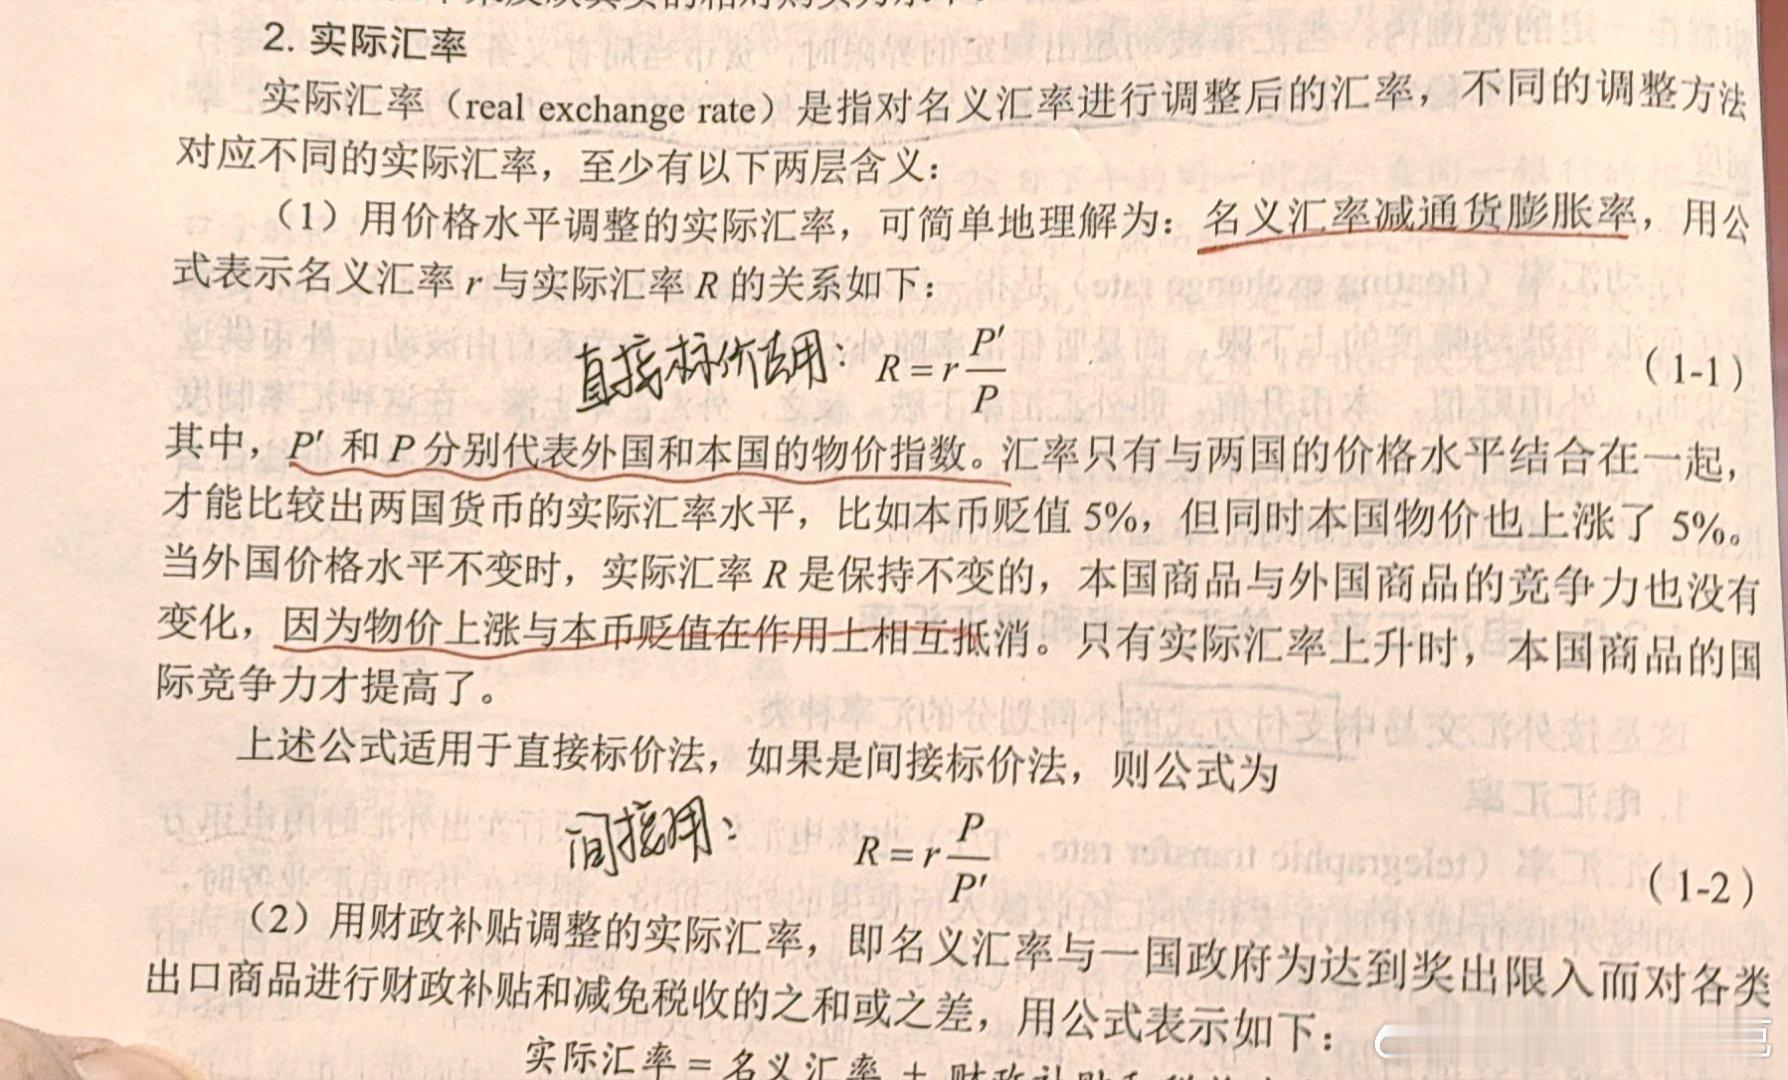 2. 实际汇率
实际汇率（real exchange rate）是指对名义汇率进行调整后的汇率，不同的调整方法
对应不同的实际汇率，至少有以下两层含义：
（1）用价格水平调整的实际汇率，可简单地理解为：名义汇率减通货膨胀率，用公
式表示名义汇率 r 与实际汇率 R 的关系如下：
直接标价法用： R = r P′/P （1-1）
其中，P′ 和 P 分别代表外国和本国的物价指数。汇率只有与两国的价格水平结合在一起，
才能比较出两国货币的实际汇率水平，比如本币贬值 5%，但同时本国物价也上涨了 5%。
当外国价格水平不变时，实际汇率 R 是保持不变的，本国商品与外国商品的竞争力也没有
变化，因为物价上涨与本币贬值在作用上相互抵消。只有实际汇率上升时，本国商品的国
际竞争力才提高了。
上述公式适用于直接标价法，如果是间接标价法，则公式为
间接用： R = r P/P′ （1-2）
（2）用财政补贴调整的实际汇率，即名义汇率与一国政府为达到奖出限入而对各类
出口商品进行财政补贴和减免税收的之和或之差，用公式表示如下：
实际汇率 = 名义汇率